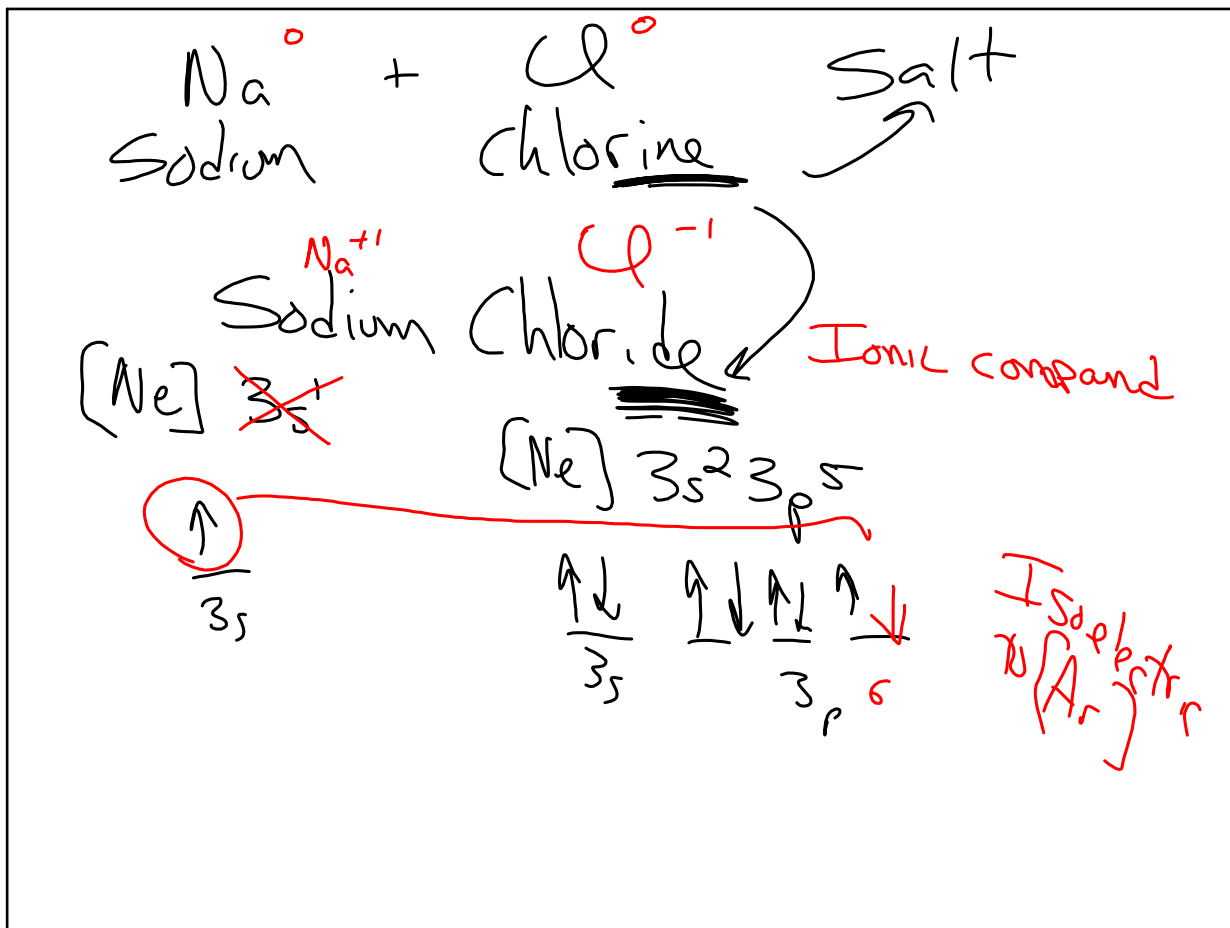 Na⁰ + Cl⁰ Salt
Sodium Chlorine
Na⁺¹ Cl⁻¹
Sodium Chloride
Ionic compand
[Ne] 3s¹
[Ne] 3s² 3p⁵
↑ ↑↓ ↑↓ ↑↓ ↑↓
3s 3s 3p 6
[Ar]